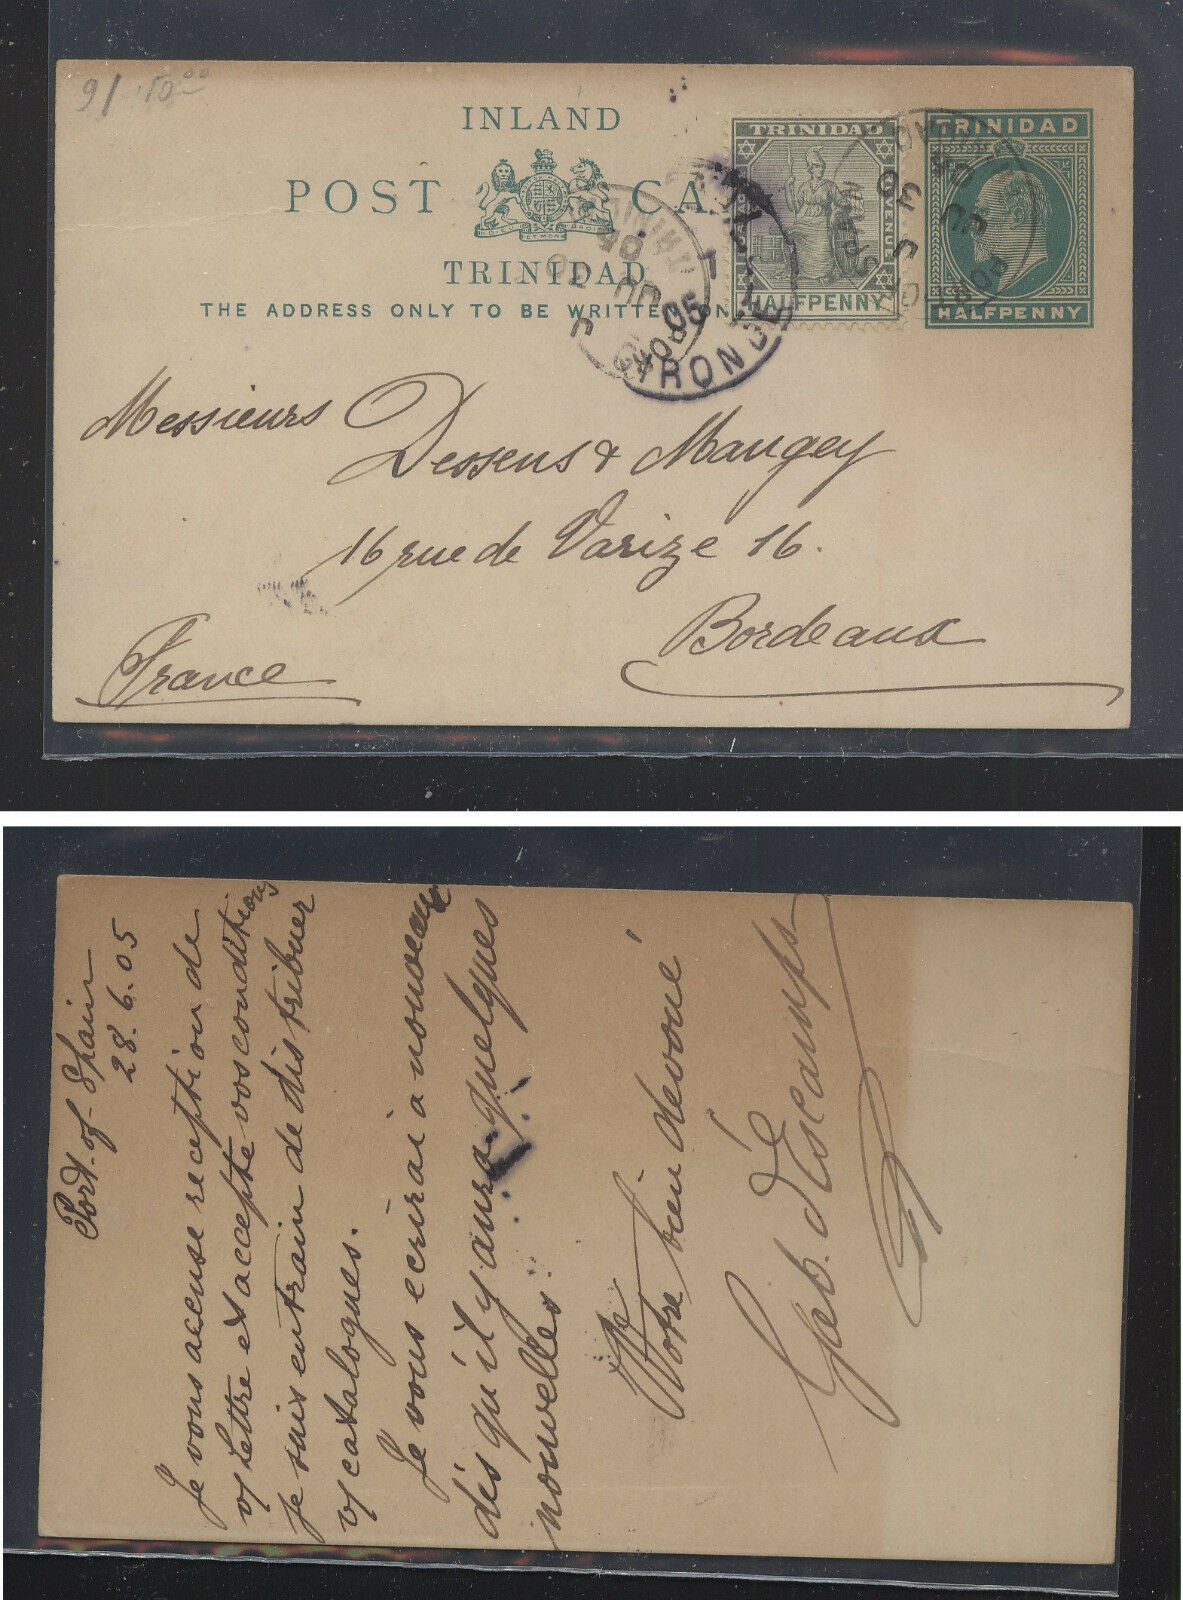 9/ 10.00
INLAND
POST CA
TRINIDAD
THE ADDRESS ONLY TO BE WRITTEN ON
TRINIDAD
REVENUE
HALFPENNY
TRINIDAD
HALFPENNY
PORT OF SPAIN
JU 30
05
GIRONDE
05
Messieurs Dessens & Maugey
16 rue de Varize 16.
Bordeaux
France
Port-of-Spain
28.6.05
Je vous accuse reception de
v/ lettre et accepte vos conditions
Je suis en train de distribuer
v/ catalogues.
Je vous ecrirai a nouveau
dès qu'il y aura quelques
nouvelles.
Votre bien dévoué
Geo. d'Escamps